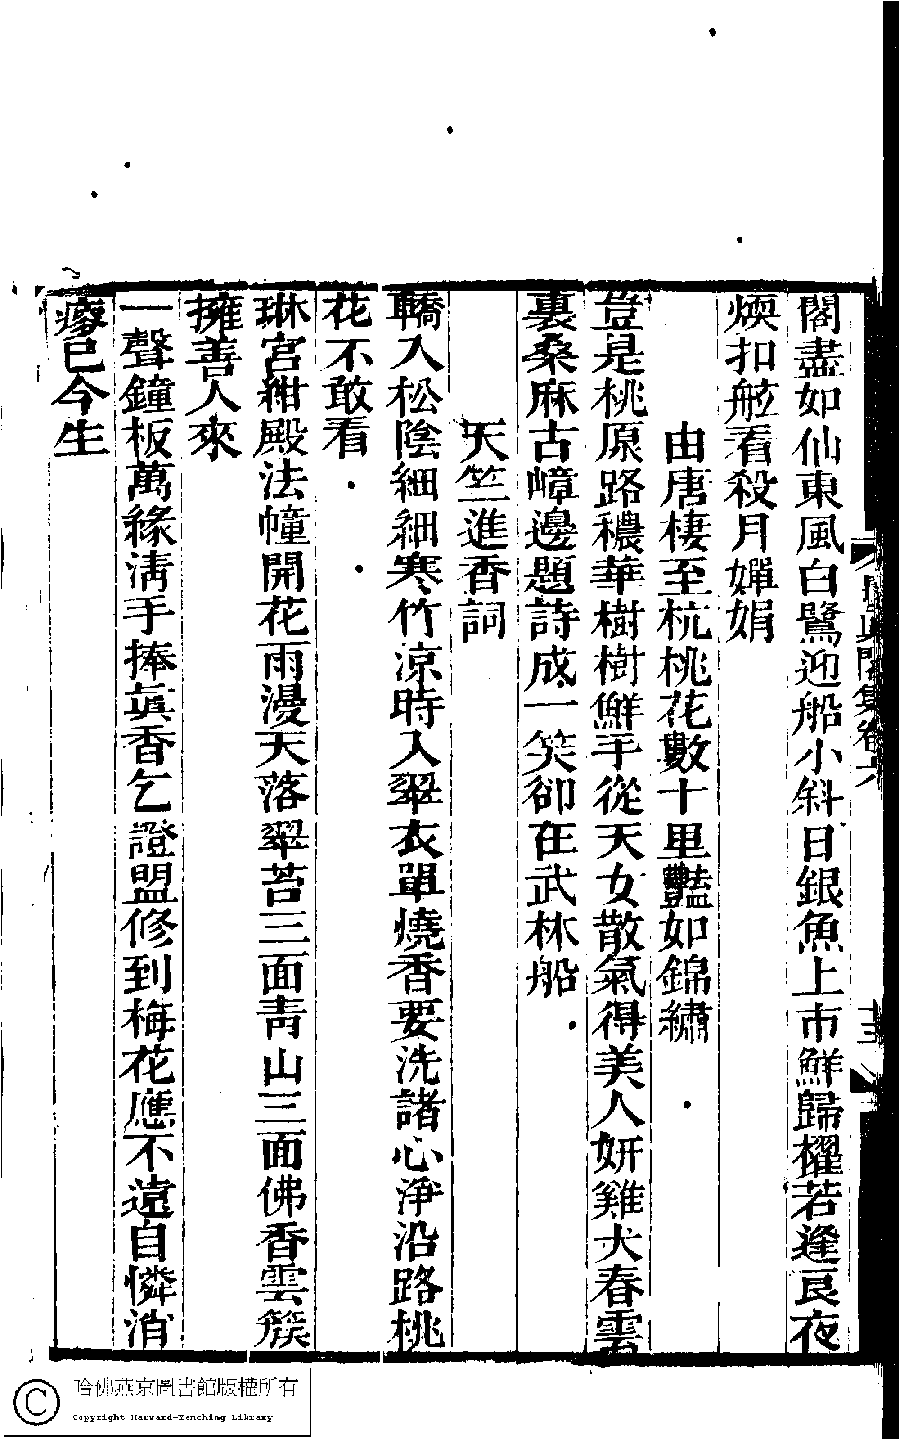 閣盡如仙東風白鷺迎船小斜日銀魚上市鮮歸櫂若逢良夜
煥扣舷看殺月嬋娟
由唐棲至杭桃花數十里豔如錦繡
豈是桃原路穠華樹樹鮮手從天女散氣得美人妍雞犬春雲
裏桑麻古嶂邊題詩成一笑卻在武林船
天竺進香詞
轎入松陰細細寒竹涼時入翠衣單燒香要洗諸心淨沿路桃
花不敢看
琳宮紺殿法幢開花雨漫天落翠苔三面靑山三面佛香雲簇
擁善人來
一聲鐘板萬緣淸手捧眞香乞證盟修到梅花應不遠自憐消
瘮已今生
集卷六
十三
哈佛燕京圖書館版權所有
Copyright Harvard-Yenching Library